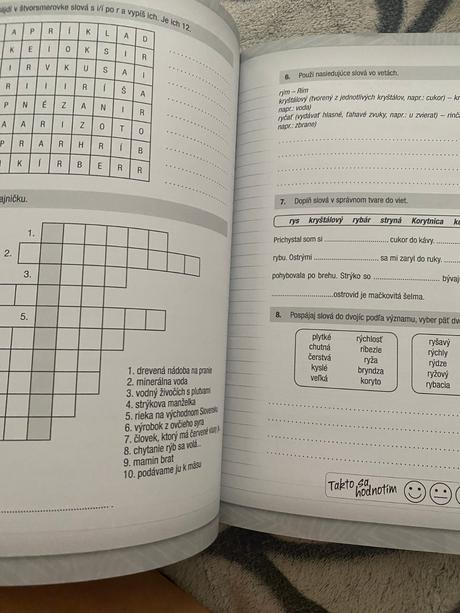 v štvorsmerovke slová s i/í po r a vypíš ich. Je ich 12.
A P R Í K L A D
K E I O K S I R
I R V K U S A I
R I I I R Í Š A
P N É Z A N I R
A A R I Z O T O
P R A R H R Í B
I K Í R B E R R
ajničku.
1.
2.
3.
5.
1. drevená nádoba na pranie
2. minerálna voda
3. vodný živočích s plutvami
4. strýkova manželka
5. rieka na východnom Slovensku
6. výrobok z ovčieho syra
7. človek, ktorý má červené vlasy je
8. chytanie rýb sa volá...
9. mamin brat
10. podávame ju k mäsu
6. Použi nasledujúce slová vo vetách.
rým – Rím
kryštálový (tvorený z jednotlivých kryštálov, napr.: cukor) –
napr.: voda)
ryčať (vydávať hlasné, ťahavé zvuky, napr.: u zvierat) –
napr.: zbrane)
7. Doplň slová v správnom tvare do viet.
rys kryštálový rybár stryná Korytnica
Prichystal som si cukor do kávy.
rybu. Ostrými sa mi zaryl do ruky.
pohybovala po brehu. Strýko so
ostrovid je mačkovitá šelma.
8. Pospájaj slová do dvojíc podľa významu, vyber päť
plytké rýchlosť
chutná ríbezle
čerstvá ryža
kyslé bryndza
veľká koryto
ryšavý
rýchly
rýdze
ryžový
rybacia
Takto sa
hodnotím